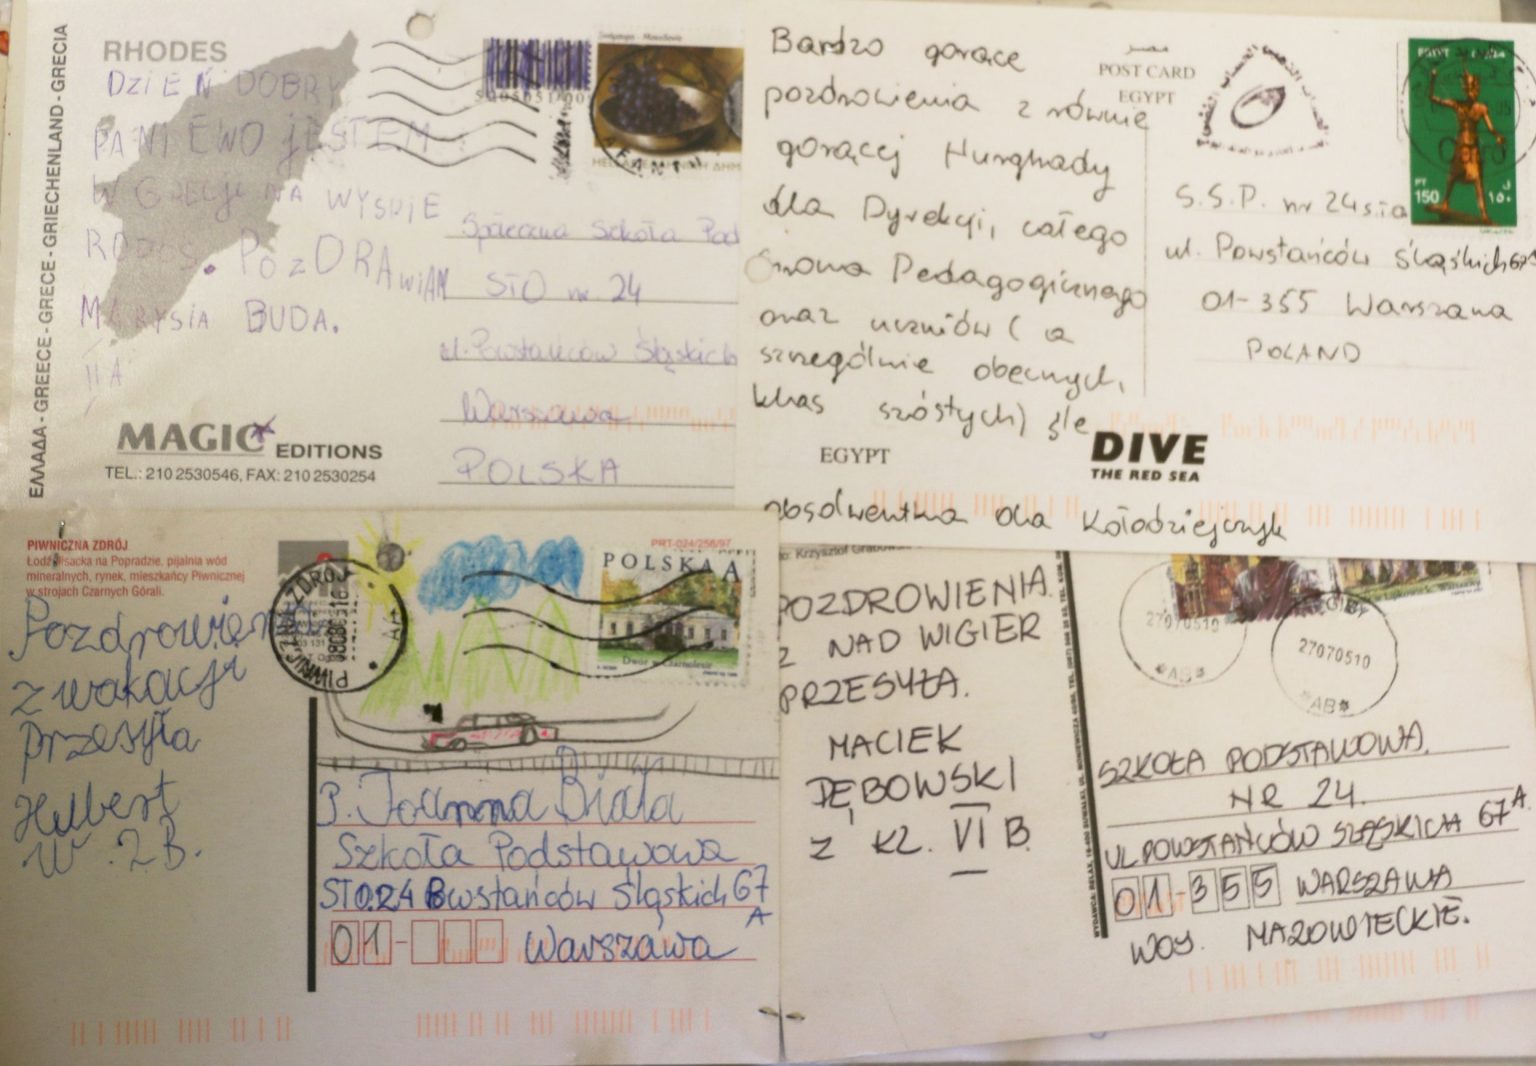 ΕΛΛΑΔΑ - GREECE - GRECE - GRIECHENLAND - GRECIA
RHODES
DZIEŃ DOBRY
PANI EWO JESTEM
W GRECJI NA WYSPIE
RODOS. POZDRAWIAM
MARYSIA BUDA.
II A
MAGIC EDITIONS
TEL.: 210 2530546, FAX: 210 2530254
Społeczna Szkoła Pod
STO nr. 24
ul. Powstańców Śląskich
Warszawa
POLSKA
Bardzo gorące
pozdrowienia z równie
gorącej Hurghady
dla Dyrekcji, całego
Grona Pedagogicznego
oraz uczniów ( a
szczególnie obecnych,
klas szóstych) śle
absolwentka Ola Kołodziejczyk
مصر
POST CARD
EGYPT
EGYPT
DIVE
THE RED SEA
PT
150
١٥٠
S.S.P. nr 24 sto
ul. Powstańców Śląskich 67A
01-355 Warszawa
POLAND
PIWNICZNA ZDRÓJ
Łódź flisacka na Popradzie, pijalnia wód
mineralnych, rynek, mieszkańcy Piwnicznej
w strojach Czarnych Górali.
PRT-024/256/97
POLSKA A
Dwór w Czarnolesie
Pozdrowienia
z wakacji
przesyła
Hubert
W .2B.
P. Joanna Biała
Szkoła Podstawowa
STO.24 Powstańców Śląskich 67
A
01- Warszawa
POZDROWIENIA
Z NAD WIGIER
PRZESYŁA.
MACIEK
DĘBOWSKI
Z KL. VI B.
27070510
*AB*
27070510
*AB*
SZKOŁA PODSTAWOWA.
NR 24.
UL POWSTAŃCÓW ŚLĄSKICH 67A.
01-355 WARSZAWA
WOJ. MAZOWIECKIE.